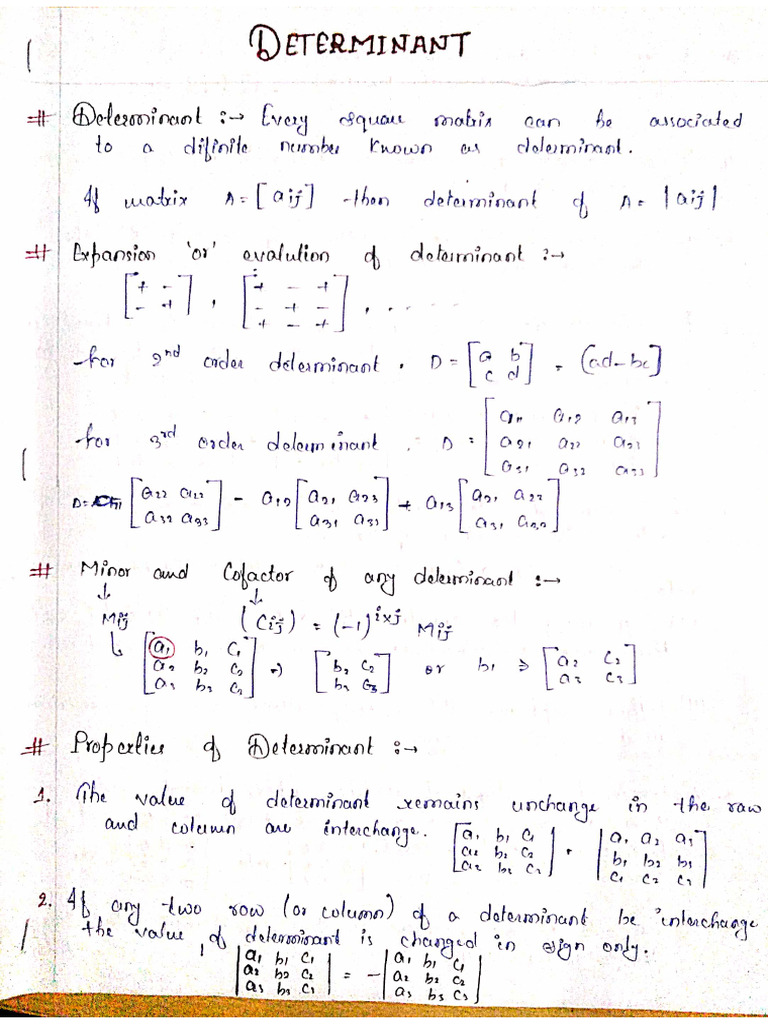 DETERMINANT
# Determinant :→ Every square matrix can be associated
to a difinite number known as determinant.
If matrix A = [aij] then determinant of A = |aij|
# Expansion 'or' evalution of determinant :→
[+ - , [+ - +
- +] - + -
+ - +] , . . . .
for 2nd order determinant . D = [a b = (ad-bc]
c d]
for 3rd order determinant . D = [a11 a12 a13
a21 a22 a23
a31 a32 a33]
D = a11 [a22 a23 - a12 [a21 a23 + a13 [a21 a22
a32 a33] a31 a33] a31 a32]
# Minor and Cofactor of any determinant :→
↓ ↓
Mij (Cij) = (-1)^ixj Mij
[a1 b1 c1
a2 b2 c2 ⇒ [b2 c2 or b1 ⇒ [a2 c2
a3 b3 c3] b3 c3] a3 c3]
# Properties of Determinant :→
1. The value of determinant remains unchange in the raw
and column are interchange. [a1 b1 c1 = |a1 a2 a3
a2 b2 c2 b1 b2 b3
a3 b3 c3] c1 c2 c3|
2. If any two row (or column) of a determinant be interchange
the value of determinant is changed in sign only.
|a1 b1 c1 = - |a1 b1 c1
a2 b2 c2 a2 b2 c2
a3 b3 c3| a3 b3 c3|